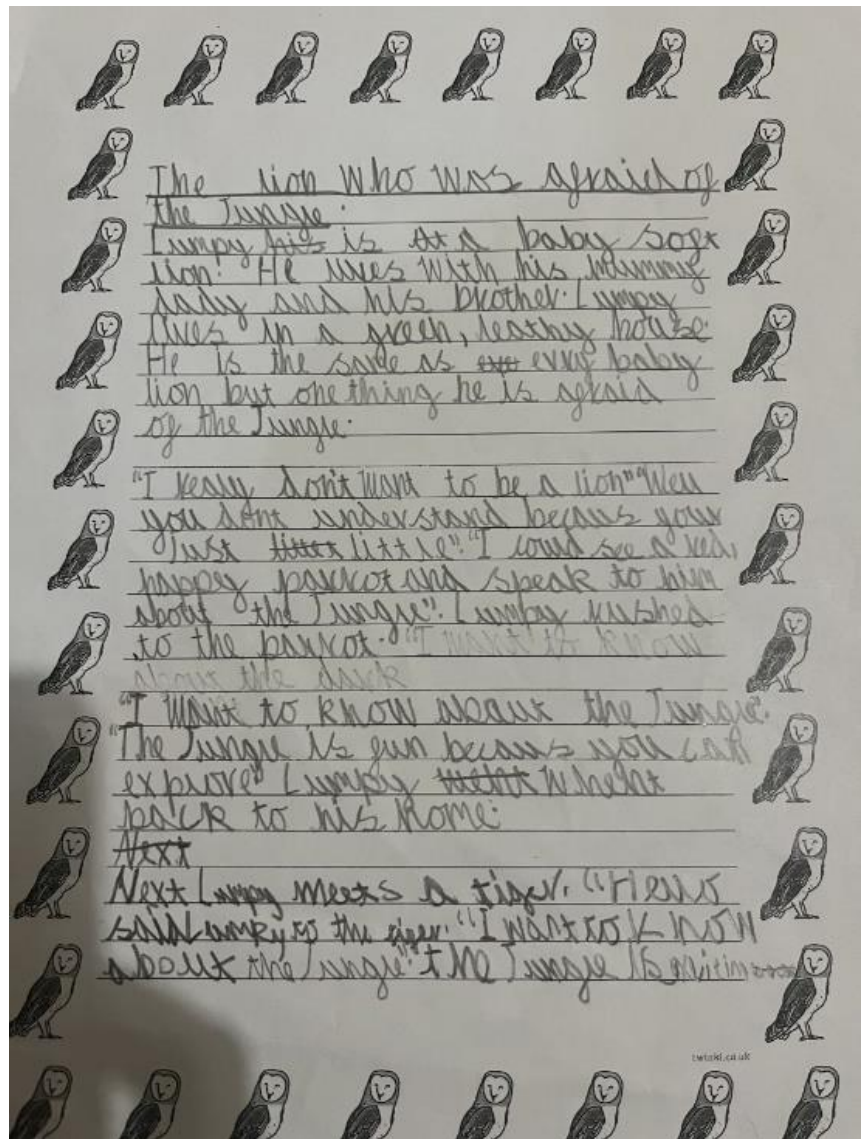 The lion who was afraid of
the Jungle.
Lumpy his is a baby soft
lion. He lives with his mummy
dady and his brother. Lumpy
lives in a green, leathy house.
He is the same as evry baby
lion but one thing he is afraid
of the Jungle.
"I realy don't want to be a lion" "Well
you dont understand becaus your
Just little". "I could see a red,
happey parrot and speak to him
about the Jungle". Lumpy rushed
to the parrot. "I want to know
about the dark
"I want to know about the Jungle".
"The Jungle is fun becaus you can
explore" Lumpy whent
back to his home.
Next
Next Lumpy meets a tiger. "Hello
said Lumpy to the tiger. "I want to know
about the Jungle". "the Jungle is
twinkl.co.uk